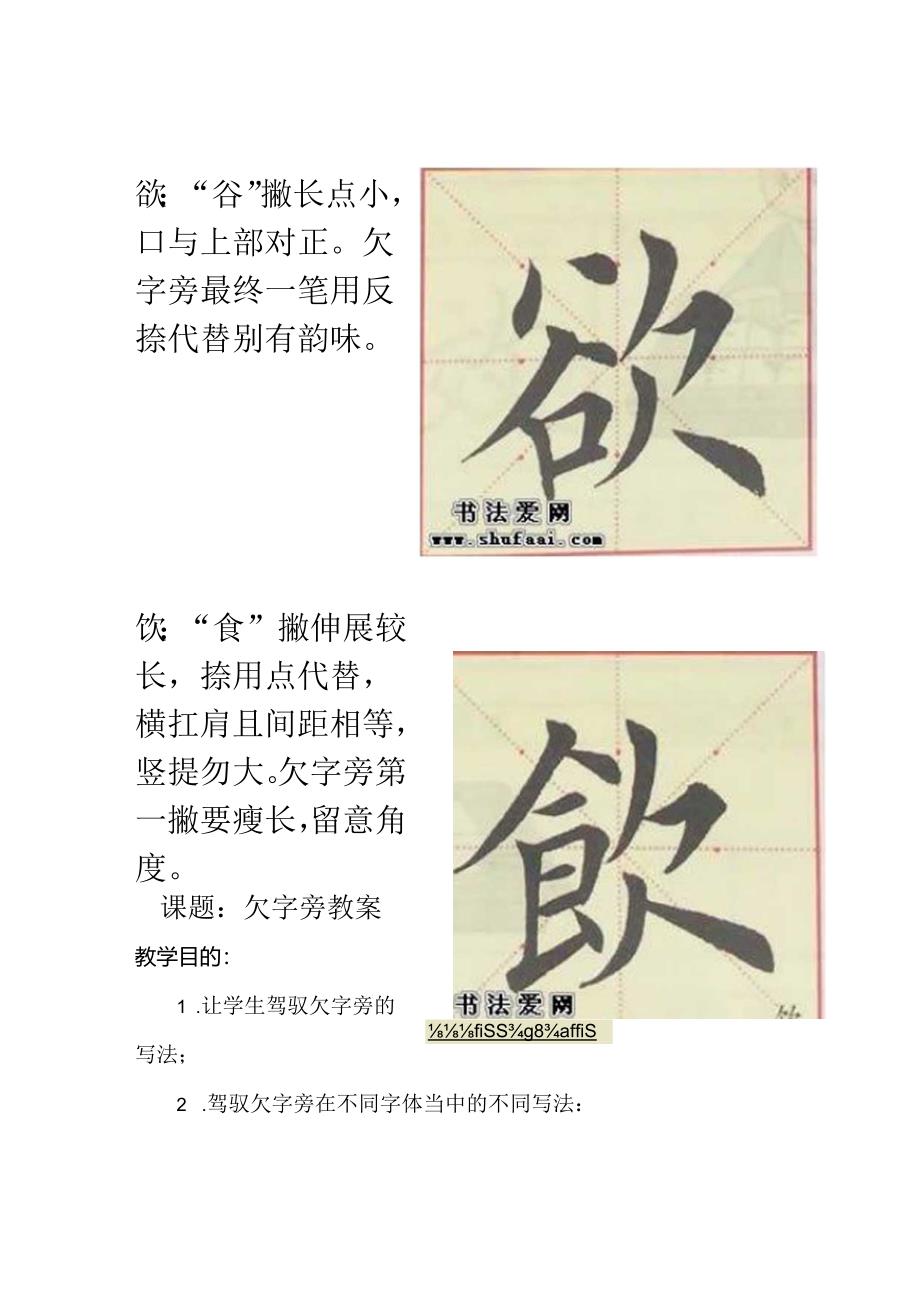 欲：“谷”撇长点小，
口与上部对正。欠
字旁最终一笔用反
捺代替别有韵味。
欲
书法爱网
www.shufaai.com
饮：“食”撇伸展较
长，捺用点代替，
横扛肩且间距相等，
竖提勿大。欠字旁第
一撇要瘦长，留意角
度。
飲
书法爱网
⅛⅛⅛fiSS¾g8¾affiS
课题：欠字旁教案
教学目的：
1 .让学生驾驭欠字旁的
写法；
2 .驾驭欠字旁在不同字体当中的不同写法：